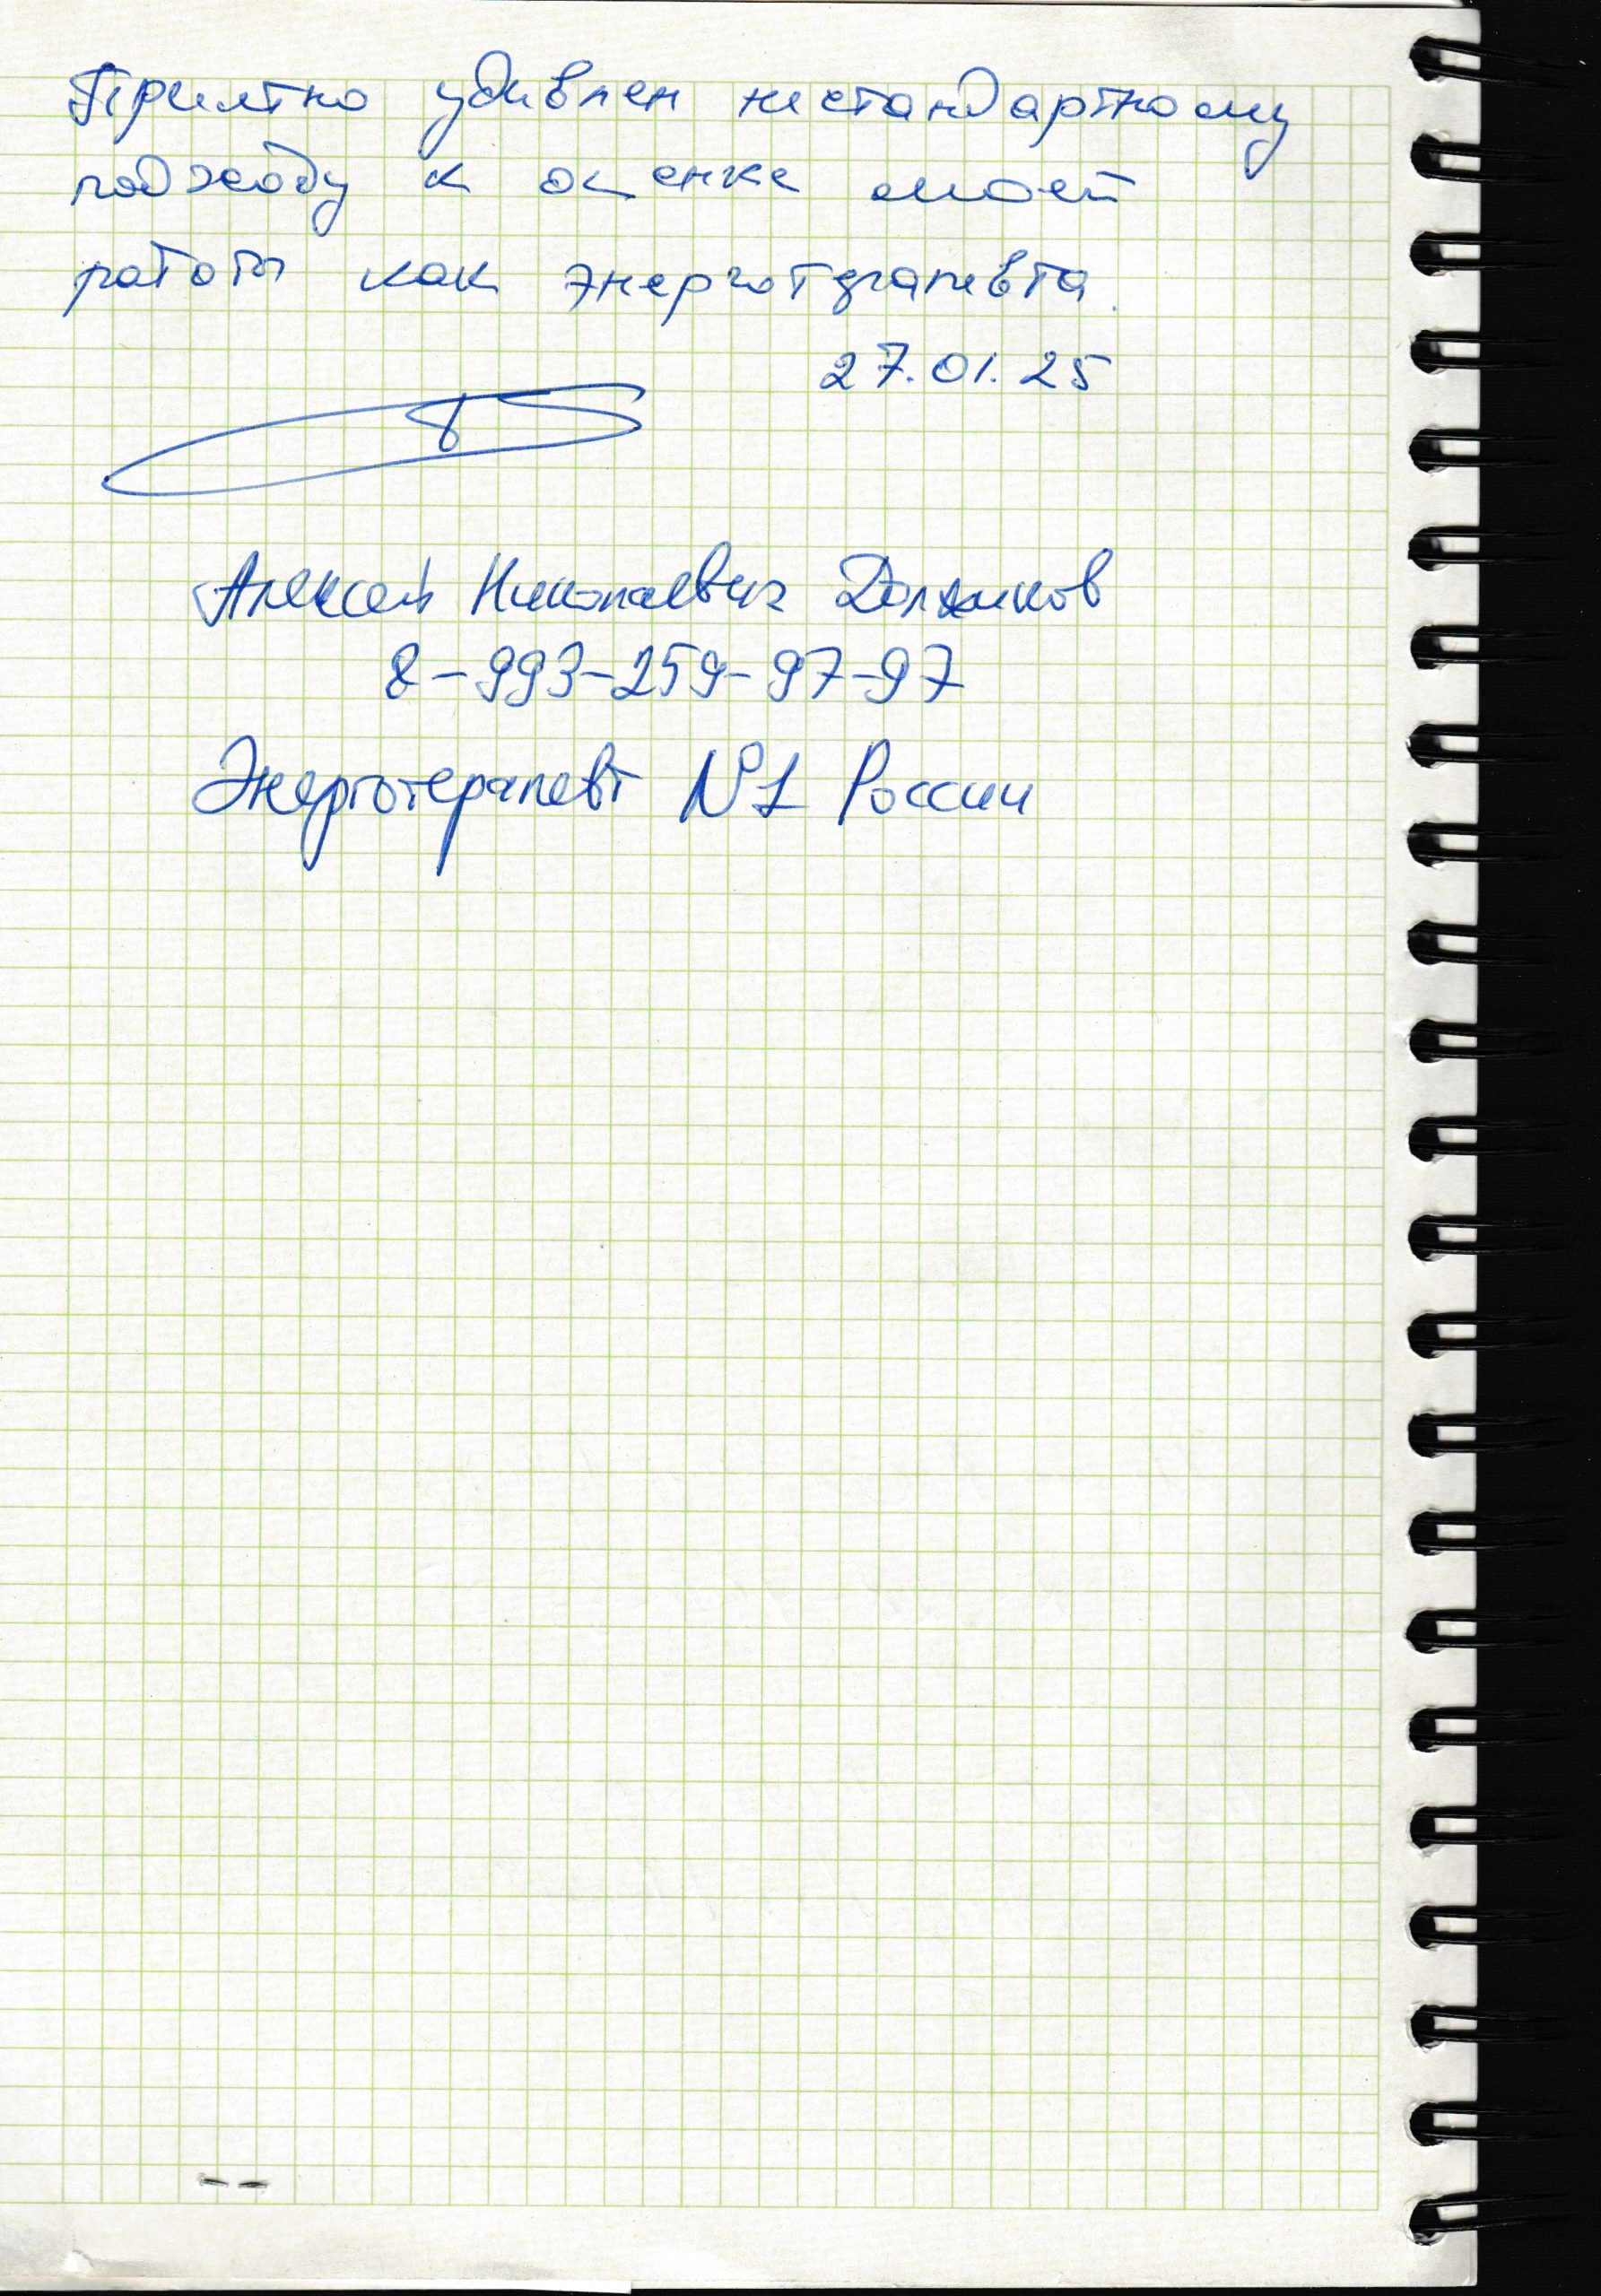 Приятно удивлен нестандартному
подходу к оценке моей
работы как энерготерапевта.
27.01.25
Алексей Николаевич Должиков
8-993-259-97-97
Энерготерапевт №1 России